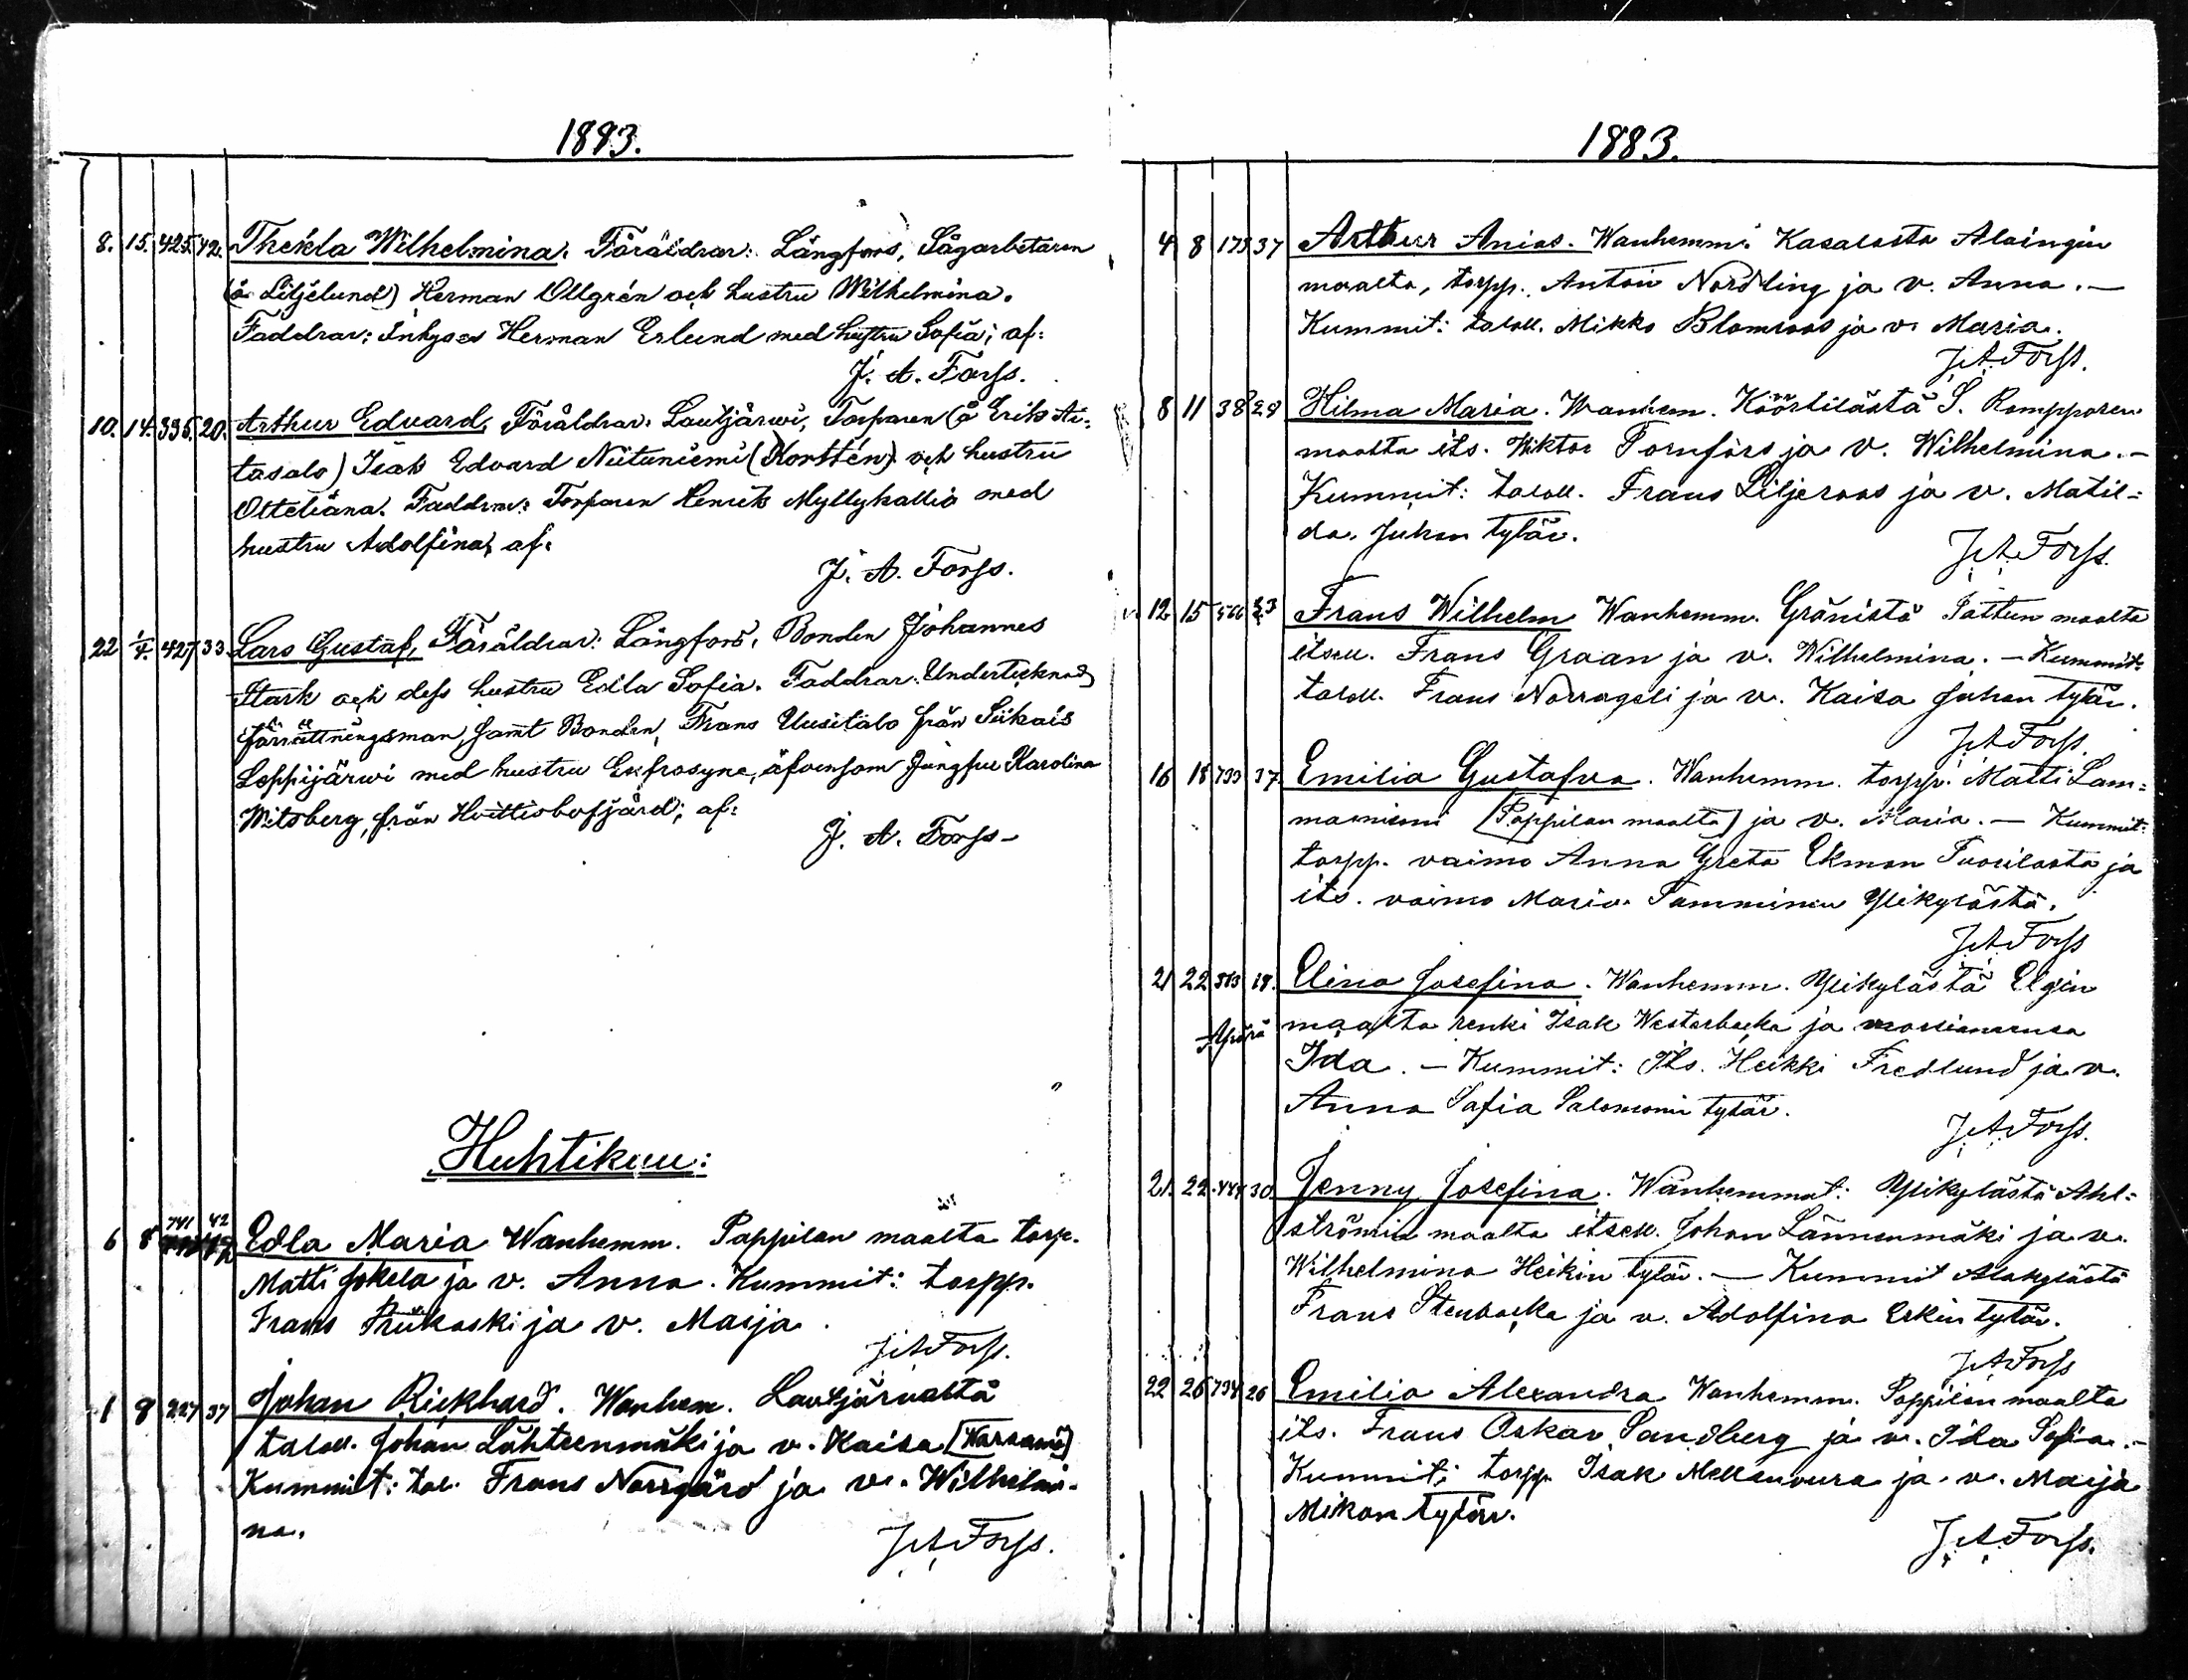 1883.
8. 15. 425. 42. Thekla Wilhelmina. Föräldrar: Långfors, Sågarbetaren
(å Liljelund) Herman Ollgrén och hustru Wilhelmina.
Faddrar: Inhyses Herman Erlund med hustru Sofia; af:
J. A. Forss.
10. 14. 336. 20. Arthur Edvard, Föräldrar: Lautjärwi, Torparen (å Erik Ai-
tasalo) Isak Edvard Niituniemi (Korttén) och hustru
Otteliana. Faddrar: Torparen Henrik Myllykallio med
hustru Adolfina, af:
J. A. Forss.
22 1/4. 427 33 Lars Gustaf, Föräldrar: Långfors, Bonden Johannes
Stark och dess hustru Edla Sofia. Faddrar: Undertecknad
förrättningsman, samt Bonden Frans Uusitalo från Siikais
Leppijärwi med hustru Eufrosyne, äfvensom Jungfru Karolina
Witsberg, från Hvittisbofjärd; af:
J. A. Forss.
Huhtikuu:
741 42
6 8 Edla Maria Wanhemm. Pappilan maalta torp.
Matti Jokela ja v. Anna. Kummit: torpp.
Frans Priikaski ja v. Maija.
J. A. Forss.
1 8 227 37 Johan Rickhard. Wanhem. Lautjärweltä
taloll. Johan Lähteenmäki ja v. Kaisa
Kummit: tal. Frans Norrgård ja v. Wilhelmi-
na.
J. A. Forss.
1883.
4 8 175 37 Arthur Anias. Wanhemmi Kasalasta Alaingin
maalta, torpp. Anton Nordling ja v. Anna. —
Kummit: taloll. Mikko Blomroos ja v. Maria.
J. A. Forss.
8 11 38 28 Hilma Maria. Wanhem. Köörtilästä S. Rompporen
maalta its. Wiktor Fornfors ja v. Wilhelmina. —
Kummit: taloll. Frans Liljeroos ja v. Matil-
da. Juhan tytär.
J. A. Forss.
12 15 Frans Wilhelm Wanhemm. Gränistä maalta
itsell. Frans Graan ja v. Wilhelmina. — Kummit:
taloll. Frans Norragoli ja v. Kaisa Juhan tytär.
J. A. Forss.
16 18 733 37. Emilia Gustafva. Wanhemm. torpp. Matti Lam-
maniemi (Pappilan maalta) ja v. Maria. — Kummit:
torpp. vaimo Anna Greta Ekman Tuorilasta ja
its. vaimo Maria Tamminen Ylikylästä.
J. A. Forss
21 22 18. Elina Josefina. Wanhemm. Ylikylästä Elgin
Äpärä maalta renki Isak Westerbacka ja morsiamensa
Ida. — Kummit: Its. Heikki Fredlund ja v.
Anna Sofia Salomonin tytär.
J. A. Forss.
21. 22. 30. Jenny Josefina. Wanhemmat: Ylikylästä Ahl-
strömin maalta itsell. Johan Lännenmäki ja v.
Wilhelmina Heikin tytär. — Kummit Alakylästä
Frans Stenbacka ja v. Adolfina Eskin tytär.
J. A. Forss
22 26 734 26 Emilia Alexandra Wanhemm. Pappilan maalta
its. Frans Oskar Sandberg ja v. Ida Sofia. —
Kummit: torpp. Isak Mellanvura ja v. Maija
Mikon tytär.
J. A. Forss.